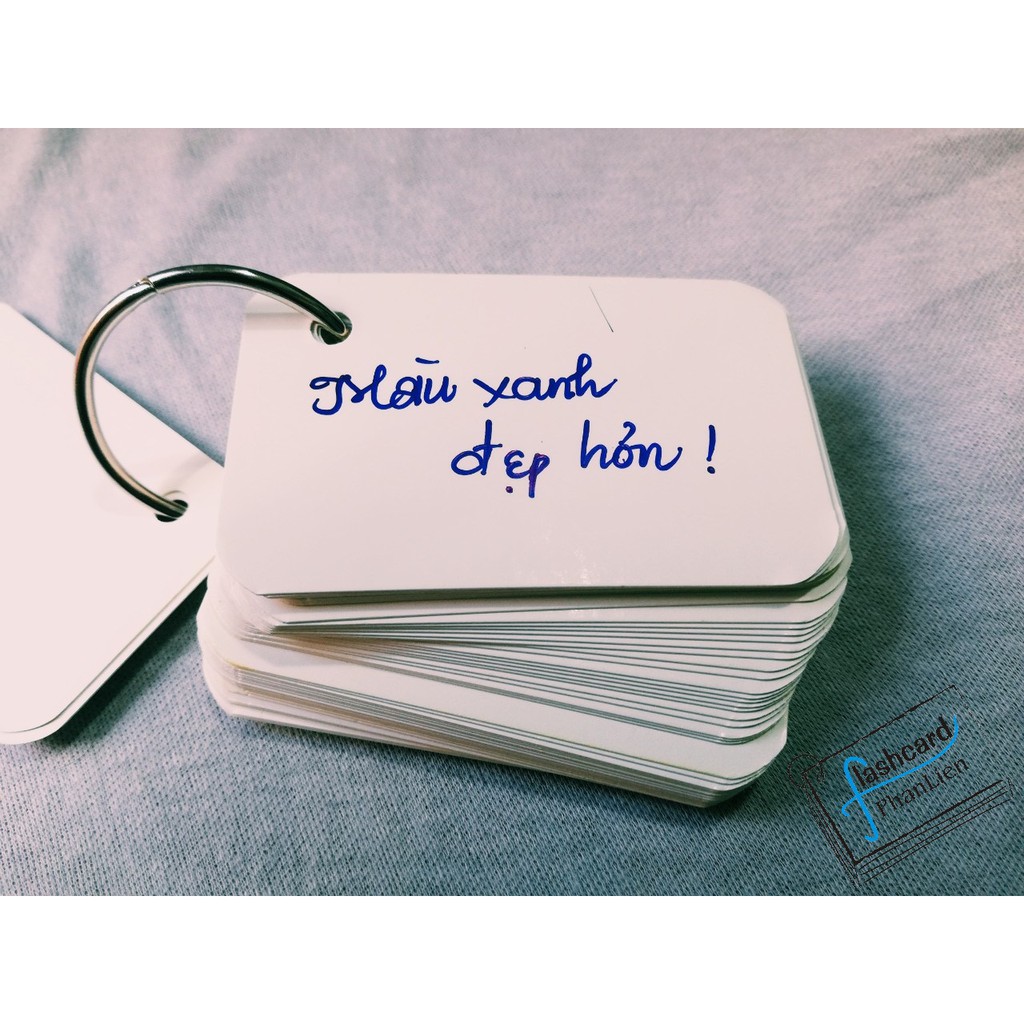 Màu xanh
đẹp hơn !
flashcard
PhanLien